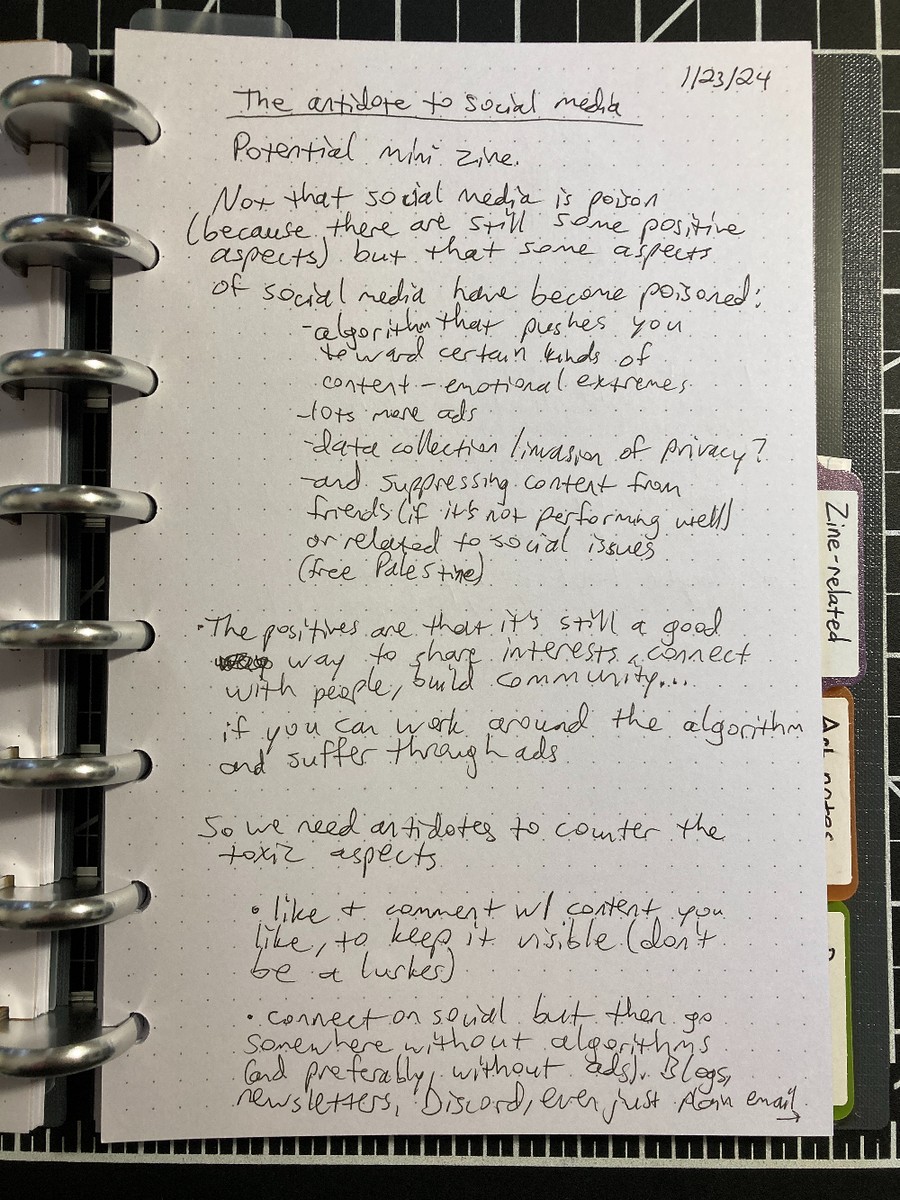 1/23/24
The antidote to social media
Potential mini zine.
Not that social media is poison
(because there are still some positive
aspects) but that some aspects
of social media have become poisoned:
-algorithm that pushes you
toward certain kinds of
content - emotional extremes
-lots more ads
-data collection/invasion of privacy?
-and suppressing content from
friends (if it's not performing well)
or related to social issues
(free Palestine)
• The positives are that it's still a good
way to share interests, connect
with people, build community...
if you can work around the algorithm
and suffer through ads
So we need antidotes to counter the
toxic aspects
• like + comment w/ content you
like, to keep it visible (don't
be a lurker)
• connect on social but then go
somewhere without algorithms
(and preferably, without ads). Blogs,
newsletters, Discord, even just plain email →
Zine-related
Art notes